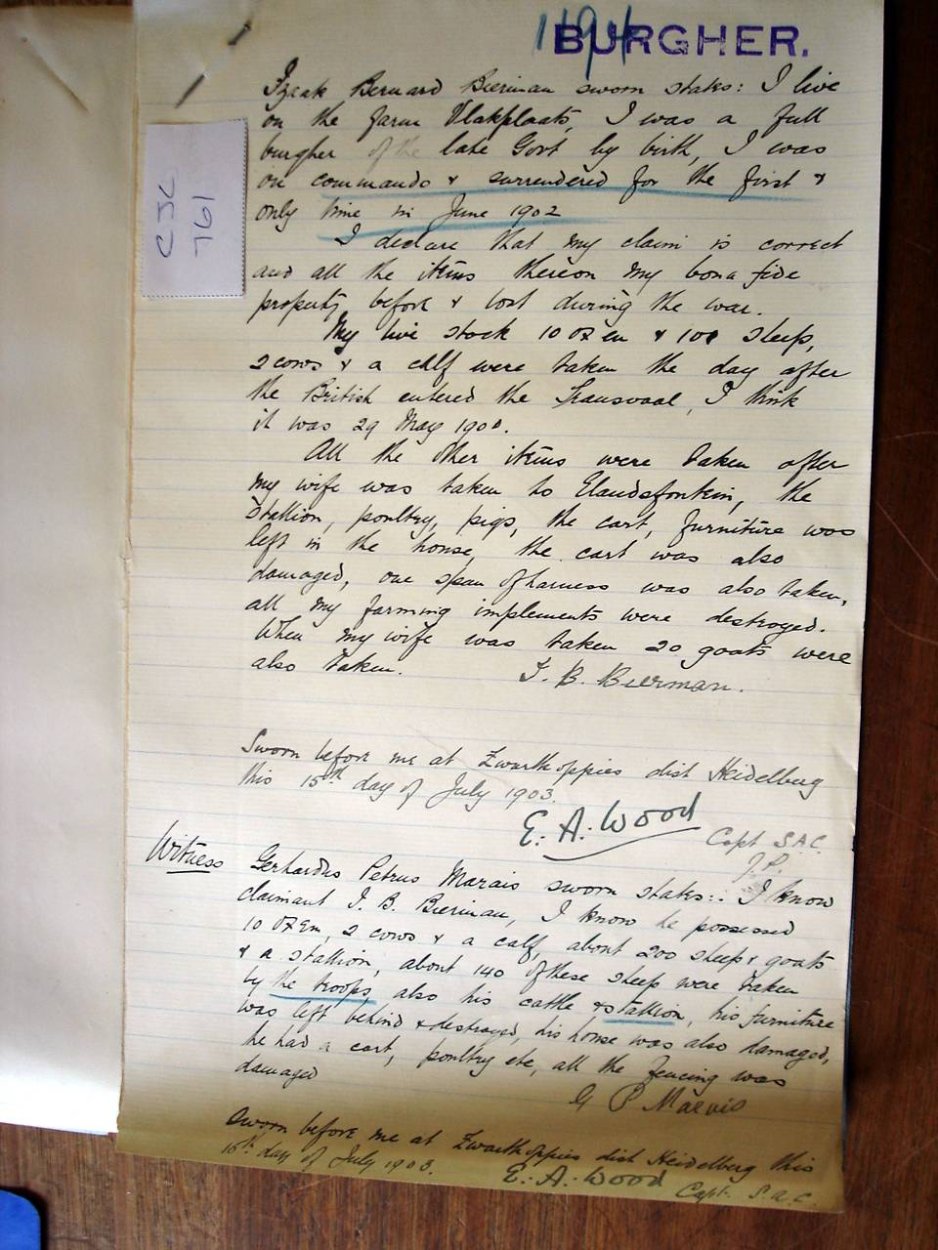 1194
BURGHER.
CJC
761
Izaak Bernard Bierman sworn states: I live
on the farm Vlakplaats, I was a full
burgher of the late Govt by birth, I was
on commando & surrendered for the first &
only time in June 1902
I declare that my claim is correct
and all the items thereon my bona fide
property before & lost during the war.
My live stock 10 oxen & 100 sheep,
2 cows & a calf were taken the day after
the British entered the Transvaal, I think
it was 29 May 1900.
All the other items were taken after
my wife was taken to Elandsfontein, the
Stallion, poultry, pigs, the cart, furniture was
left in the house, the cart was also
damaged, one span of harness was also taken,
all my farming implements were destroyed.
When my wife was taken 20 goats were
also taken.
I. B. Bierman.
Sworn before me at Zwartkoppies dist Heidelberg
this 15th day of July 1903.
E. A. Wood
Capt S.A.C.
J.P.
Witness
Gerhardus Petrus Marais sworn states:. I know
claimant I. B. Bierman, I know he possessed
10 oxen, 2 cows & a calf, about 200 sheep & goats
& a stallion, about 140 of these sheep were taken
by the troops, also his cattle & stallion, his furniture
was left behind & destroyed, his house was also damaged,
he had a cart, poultry etc, all the fencing was
damaged
G P Marais
Sworn before me at Zwartkoppies dist Heidelberg this
15th day of July 1903.
E. A. Wood
Capt. S.A.C.